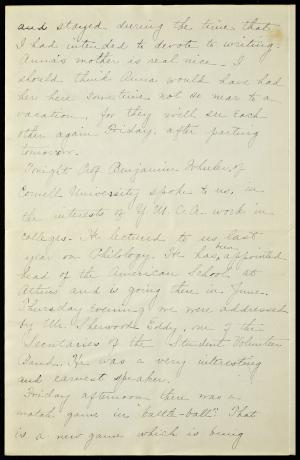 and stayed during the time that
I had intended to devote to writing.
Anna's mother is real nice. I
should think Anna would have had
her here sometime not so near to a
vacation, for they will see each
other again Friday, after parting
tomorrow.
Tonight Prof Benjamin Wheeler, of
Cornell University spoke to us, in
the interests of Y.M.C.A. work in
colleges. He lectured to us last
year on Philology. He has, been appointed
head of the American School at
Athens and is going there in June.
Thursday Evening, we were addressed
by Mr. Sherwood Eddy, one of the
Secretaries of the Student Volunteer
Band. He was a very interesting
and earnest speaker.
Friday afternoon there was a
match game in "battle-ball." That
is a new game which is being